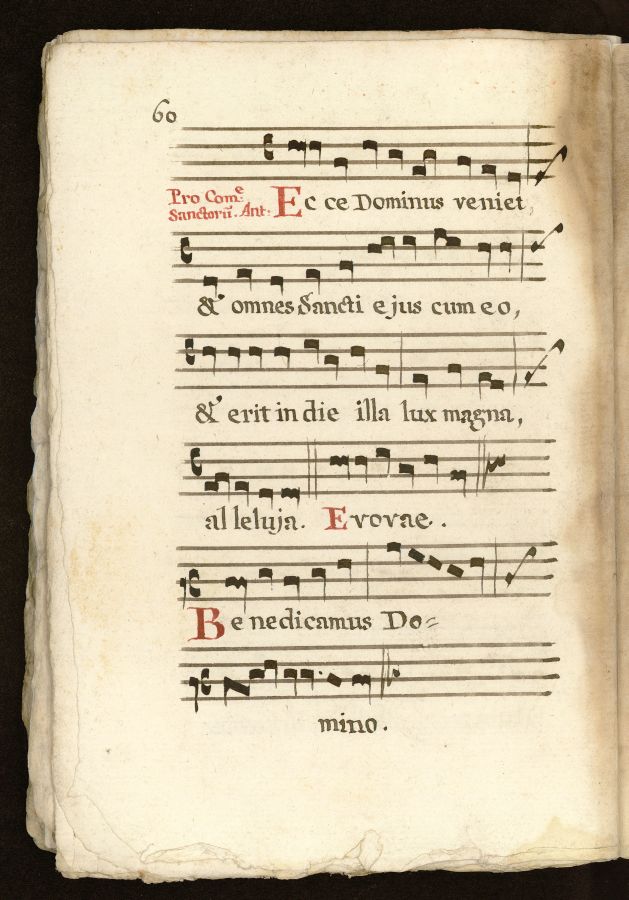 60
Pro Com̃e
Sanctorũ. Ant:
Ec ce Dominus veniet,
& omnes Sancti ejus cum eo,
& erit in die illa lux magna,
al leluja. Evovae.
Be nedicamus Do=
mino.